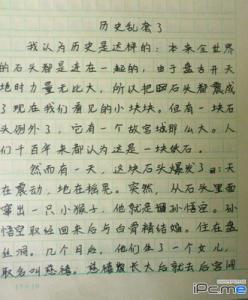 历史乱套了
我认为历史是这样的：本来全世界
的石头都是连在一起的，由于盘古开天
地时力量无比大，所以把石头都震成
了现在我们看见的小块块。但有一块石
头例外了，它有一个故宫城那么大。人
们千百年来都认为这是一块铁石。
然而有一天，这块石头爆发了：天
在震动，地在摇晃。突然，从石头里面
窜出一只小猴子，他就是孙悟空。孙
悟空取经回来后与白骨精结婚。住在盘
丝洞。几个月后，他们生了一个女儿，
取名叫慈禧。慈禧长大后就去后宫
iPcme